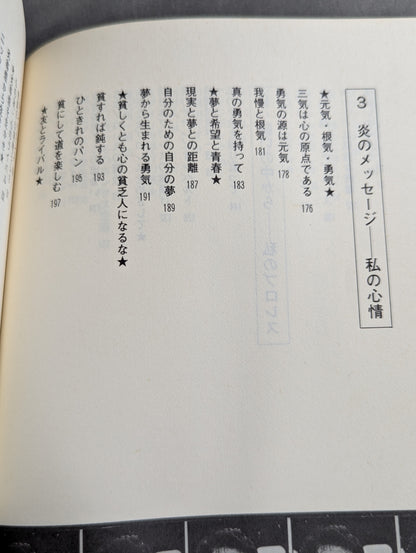 3 炎のメッセージ——私の心情
★元気・根気・勇気★
三気は心の原点である 176
勇気の源は元気 178
我慢と根気 181
真の勇気を持って 183
★夢と希望と青春★
現実と夢との距離 187
自分のための自分の夢 189
夢から生まれる勇気 191
★貧しくとも心の貧乏人になるな★
貧すれば鈍する 193
ひときれのパン 195
貧にして道を楽しむ 197
★友とライバル★